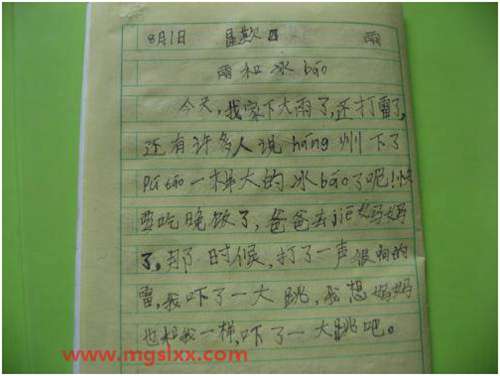 8月1日 星期日 雨
雨和冰báo
今天，我家下大雨了，还打雷了，
还有许多人说háng州下了
pú táo一样大的冰báo了呢！快
要吃晚饭了，爸爸去jiē妈妈
了，那时候，打了一声很响的
雷，我吓了一大跳，我想妈妈
也和我一样，吓了一大跳吧。
www.mgslxx.com